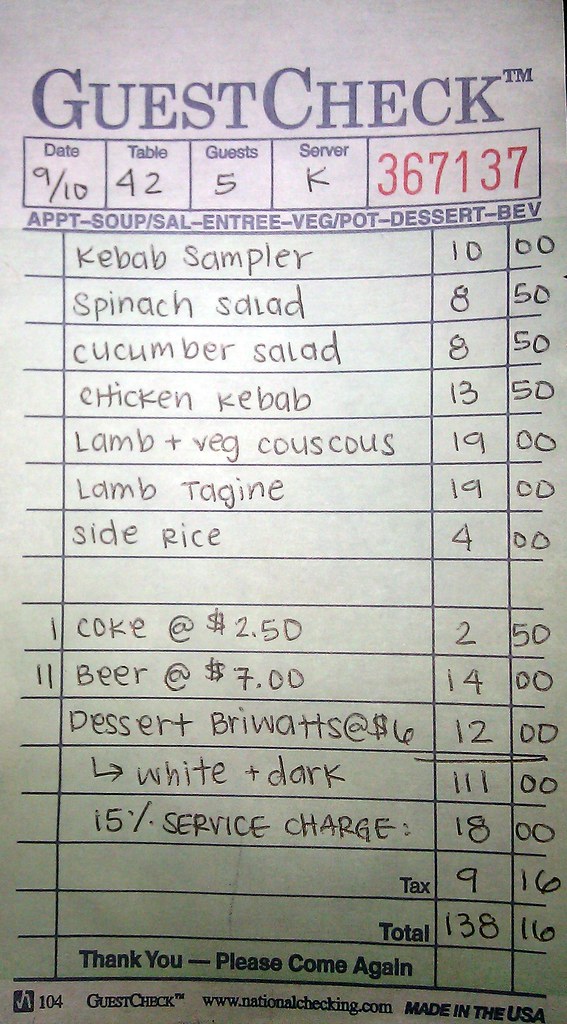 GUESTCHECK™
Date Table Guests Server
9/10 42 5 K 367137
APPT–SOUP/SAL–ENTREE–VEG/POT–DESSERT–BEV
Kebab Sampler 10 00
Spinach salad 8 50
cucumber salad 8 50
cHicken Kebab 13 50
Lamb + veg couscous 19 00
Lamb Tagine 19 00
side Rice 4 00
I coke @ $2.50 2 50
II Beer @ $7.00 14 00
Dessert Briwatts@$6 12 00
↳ white + dark 111 00
15% SERVICE CHARGE: 18 00
Tax 9 16
Total 138 16
Thank You — Please Come Again
104 GUESTCHECK™ www.nationalchecking.com MADE IN THE USA